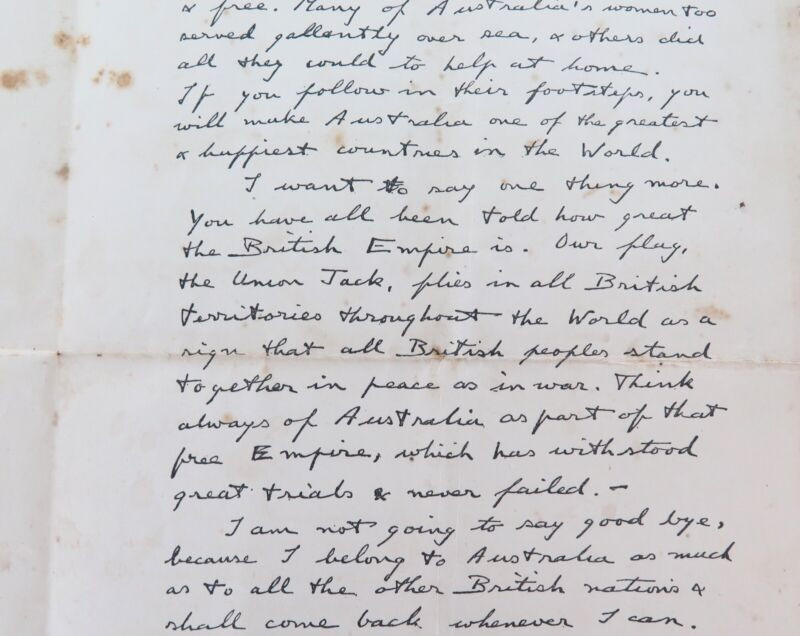 & free. Many of Australia's women too
served gallantly over sea, & others did
all they could to help at home.
If you follow in their footsteps, you
will make Australia one of the greatest
& happiest countries in the World.
I want to say one thing more.
You have all been told how great
the British Empire is. Our flag,
the Union Jack, flies in all British
territories throughout the World as a
sign that all British peoples stand
together in peace as in war. Think
always of Australia as part of that
free Empire, which has withstood
great trials & never failed. –
I am not going to say good bye,
because I belong to Australia as much
as to all the other British nations &
shall come back whenever I can.